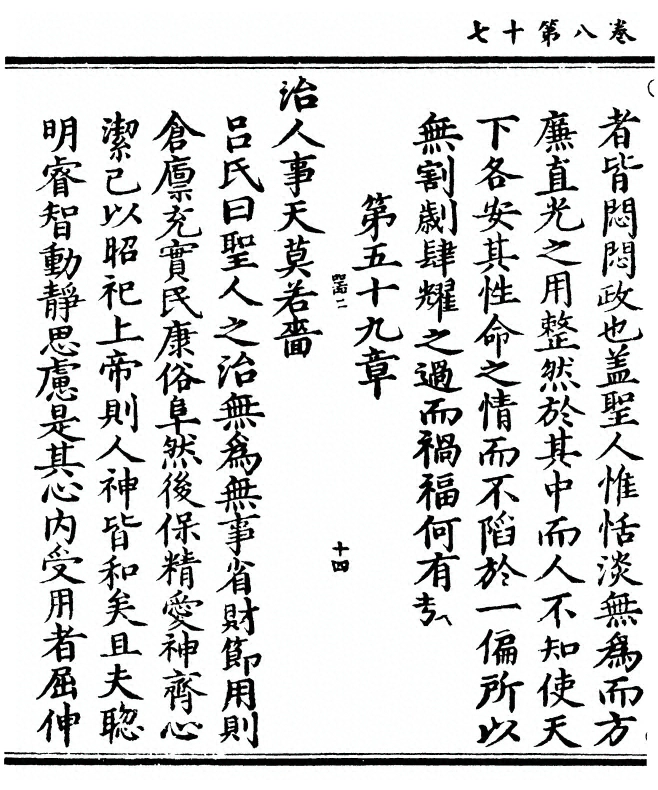 卷八第十七
者皆悶悶政也盖聖人惟恬淡無爲而方
廉直光之用整然於其中而人不知使天
下各安其性命之情而不陷於一偏所以
無割劌肆耀之過而禍福何有
第五十九章
十四
治人事天莫若嗇
吕氏曰聖人之治無爲無事省財節用則
倉廪充實民康俗阜然後保精愛神齊心
潔己以昭祀上帝則人神皆和矣且夫聦
明睿智動靜思慮是其心内受用者屈伸